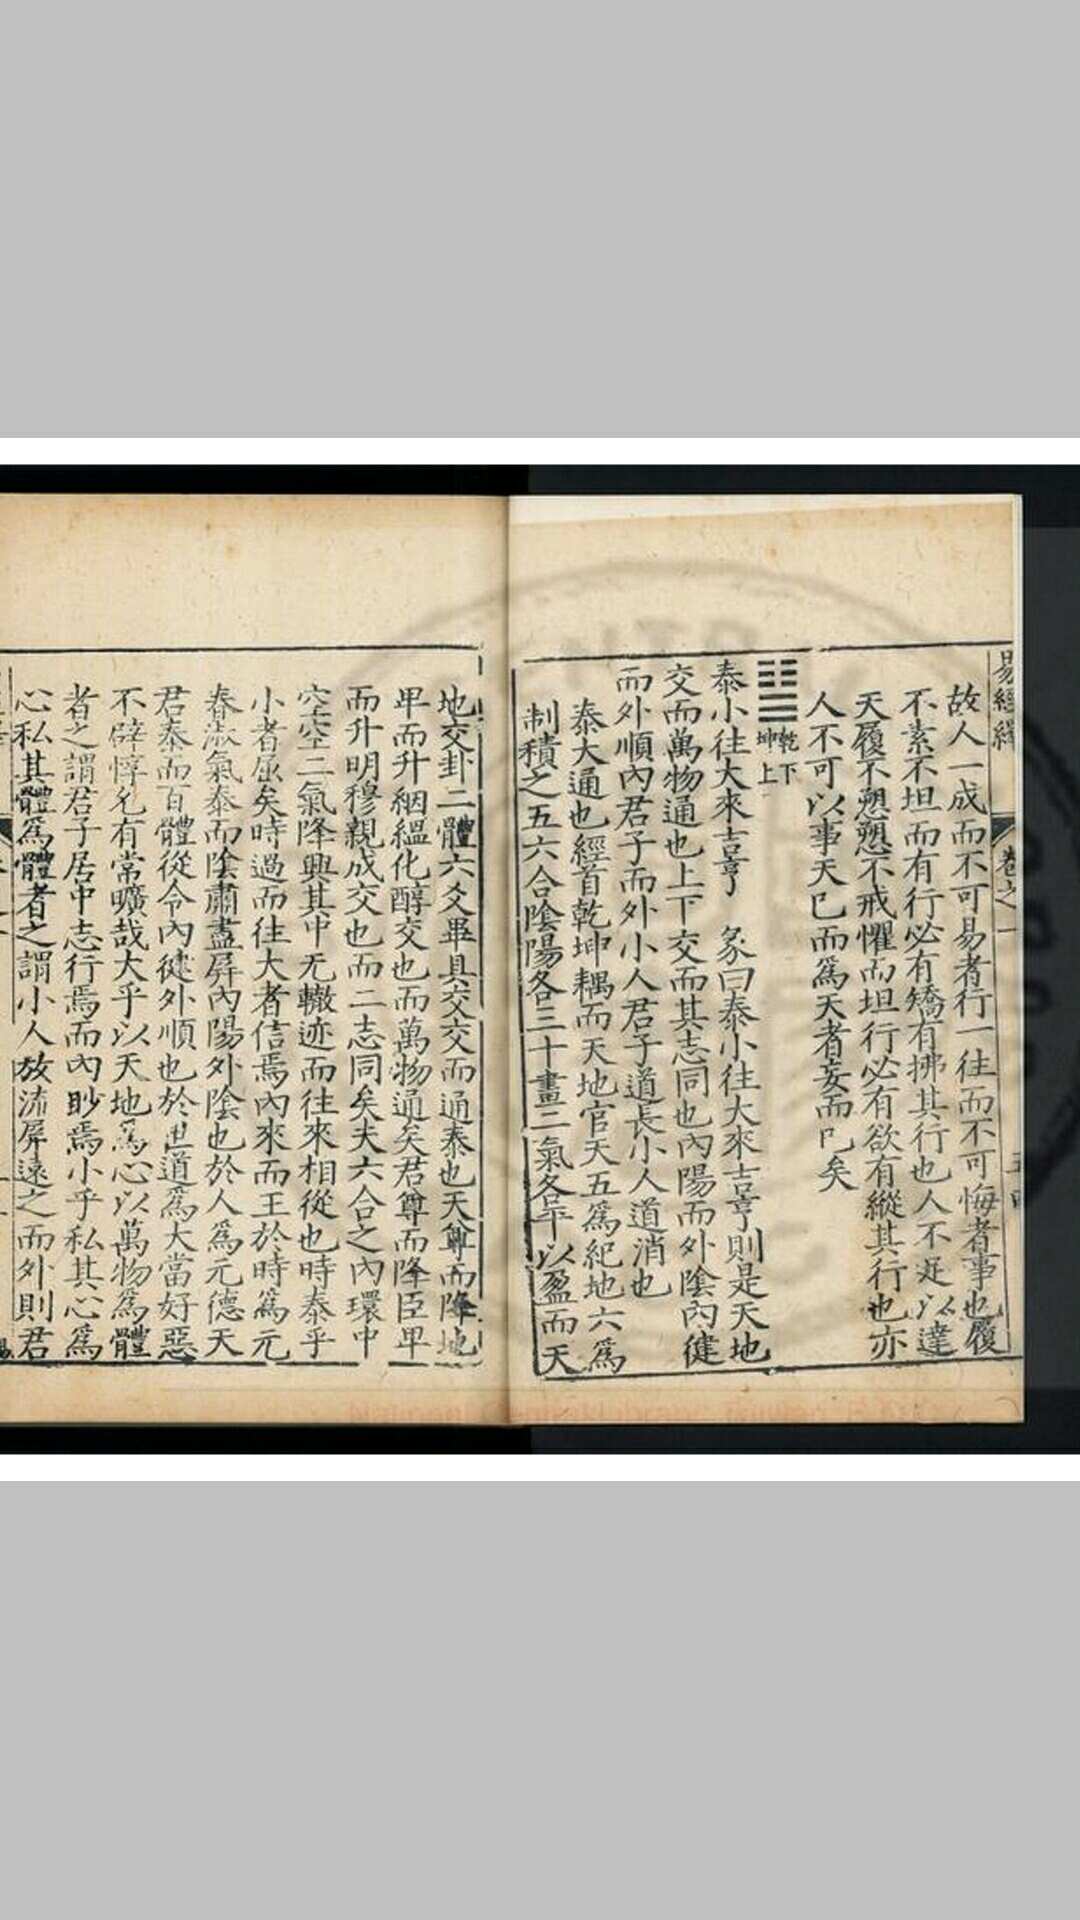 易經繹
卷之一
故人一成而不可易者行一往而不可悔者事也履
不素不坦而有行必有矯有拂其行也人不足以達
天履不愬愬不戒懼而坦行必有欲有縱其行也亦
人不可以事天已而爲天者妄而已矣
乾下
坤上
泰小往大來吉亨 彖曰泰小往大來吉亨則是天地
交而萬物通也上下交而其志同也內陽而外陰內健
而外順內君子而外小人君子道長小人道消也
泰大通也經首乾坤耦而天地官天五爲紀地六爲
制積之五六合陰陽各三十畫二氣各平以盈而天
地交卦二體六爻畢具交交而通泰也天尊而降地
卑而升絪縕化醇交也而萬物通矣君尊而降臣卑
而升明穆親成交也而二志同矣夫六合之內環中
空空二氣降興其中无轍迹而往來相從也時泰乎
小者屈矣時過而往大者信焉內來而王於時爲元
春淑氣泰而陰肅盡屏內陽外陰也於人爲元德天
君泰而百體從令內健外順也於世道爲大當好惡
不辟惇允有常曠哉大乎以天地爲心以萬物爲體
者之謂君子居中志行焉而內眇焉小乎私其心爲
心私其體爲體者之謂小人放流屏遠之而外則君